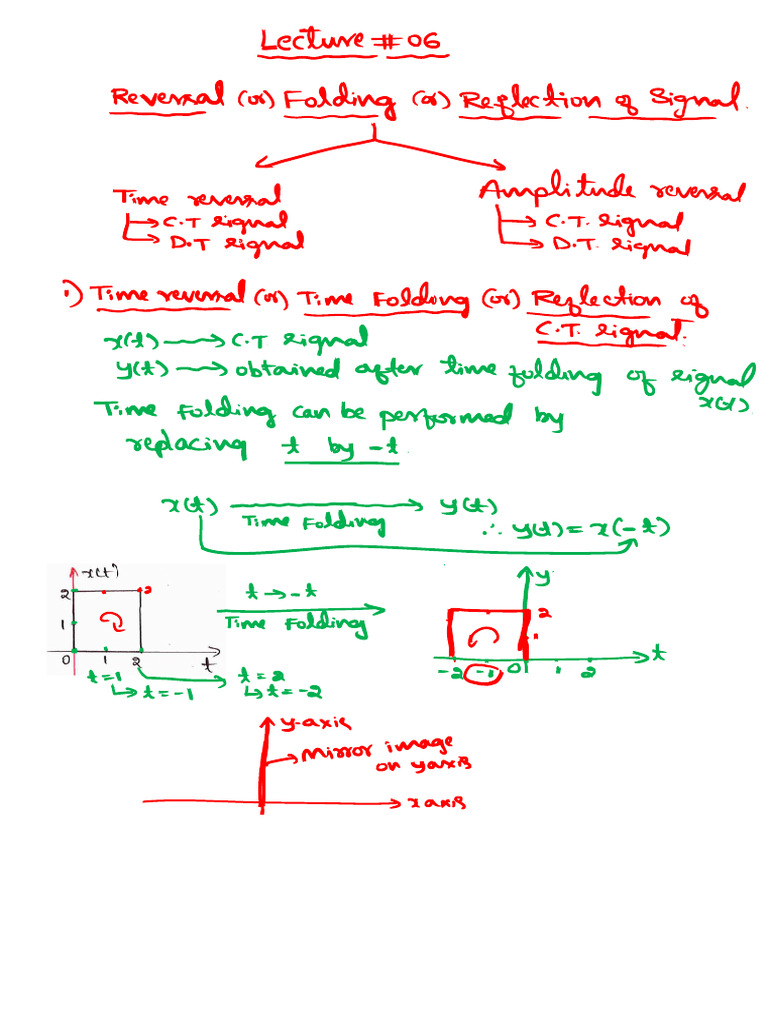 Lecture # 06
Reversal (or) Folding (or) Reflection of Signal.
Time reversal
→ C.T signal
→ D.T signal
Amplitude reversal
→ C.T. signal
→ D.T. signal
i) Time reversal (or) Time Folding (or) Reflection of
C.T. signal.
x(t) → C.T signal
y(t) → obtained after time folding of signal
x(t)
Time Folding can be performed by
replacing t by -t.
x(t) → y(t)
Time Folding
∴ y(t) = x(-t)
x(t)
2
2
1
0 1 2 t
t=1
↳ t=-1
t=2
↳ t=-2
t → -t
Time Folding
y
2
1
-2 -1 0 1 2 t
y-axis
→ Mirror image
on y axis
x axis